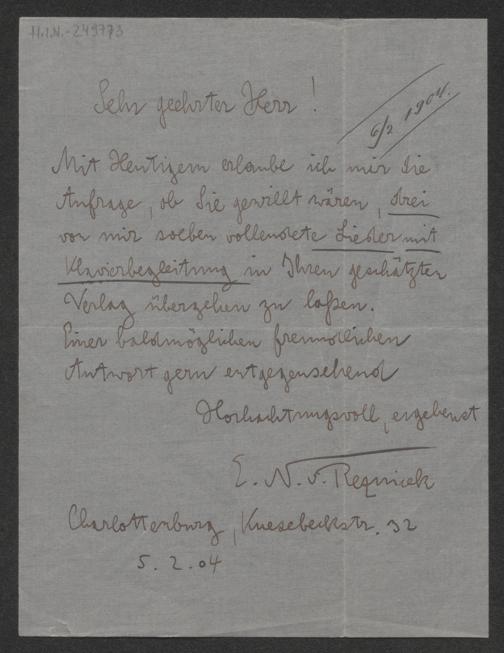 H.I.N.-249773
Sehr geehrter Herr!
6/2 1904.
Mit Heutigem erlaube ich mir die
Anfrage, ob Sie gewillt wären, drei
von mir soeben vollendete Lieder mit
Klavierbegleitung in Ihren geschätzten
Verlag übergehen zu laßen.
Einer baldmöglichen freundlichen
Antwort gern entgegensehend
Hochachtungsvoll, ergebenst
E. N. v. Reznicek
Charlottenburg, Knesebeckstr. 32
5. 2. 04